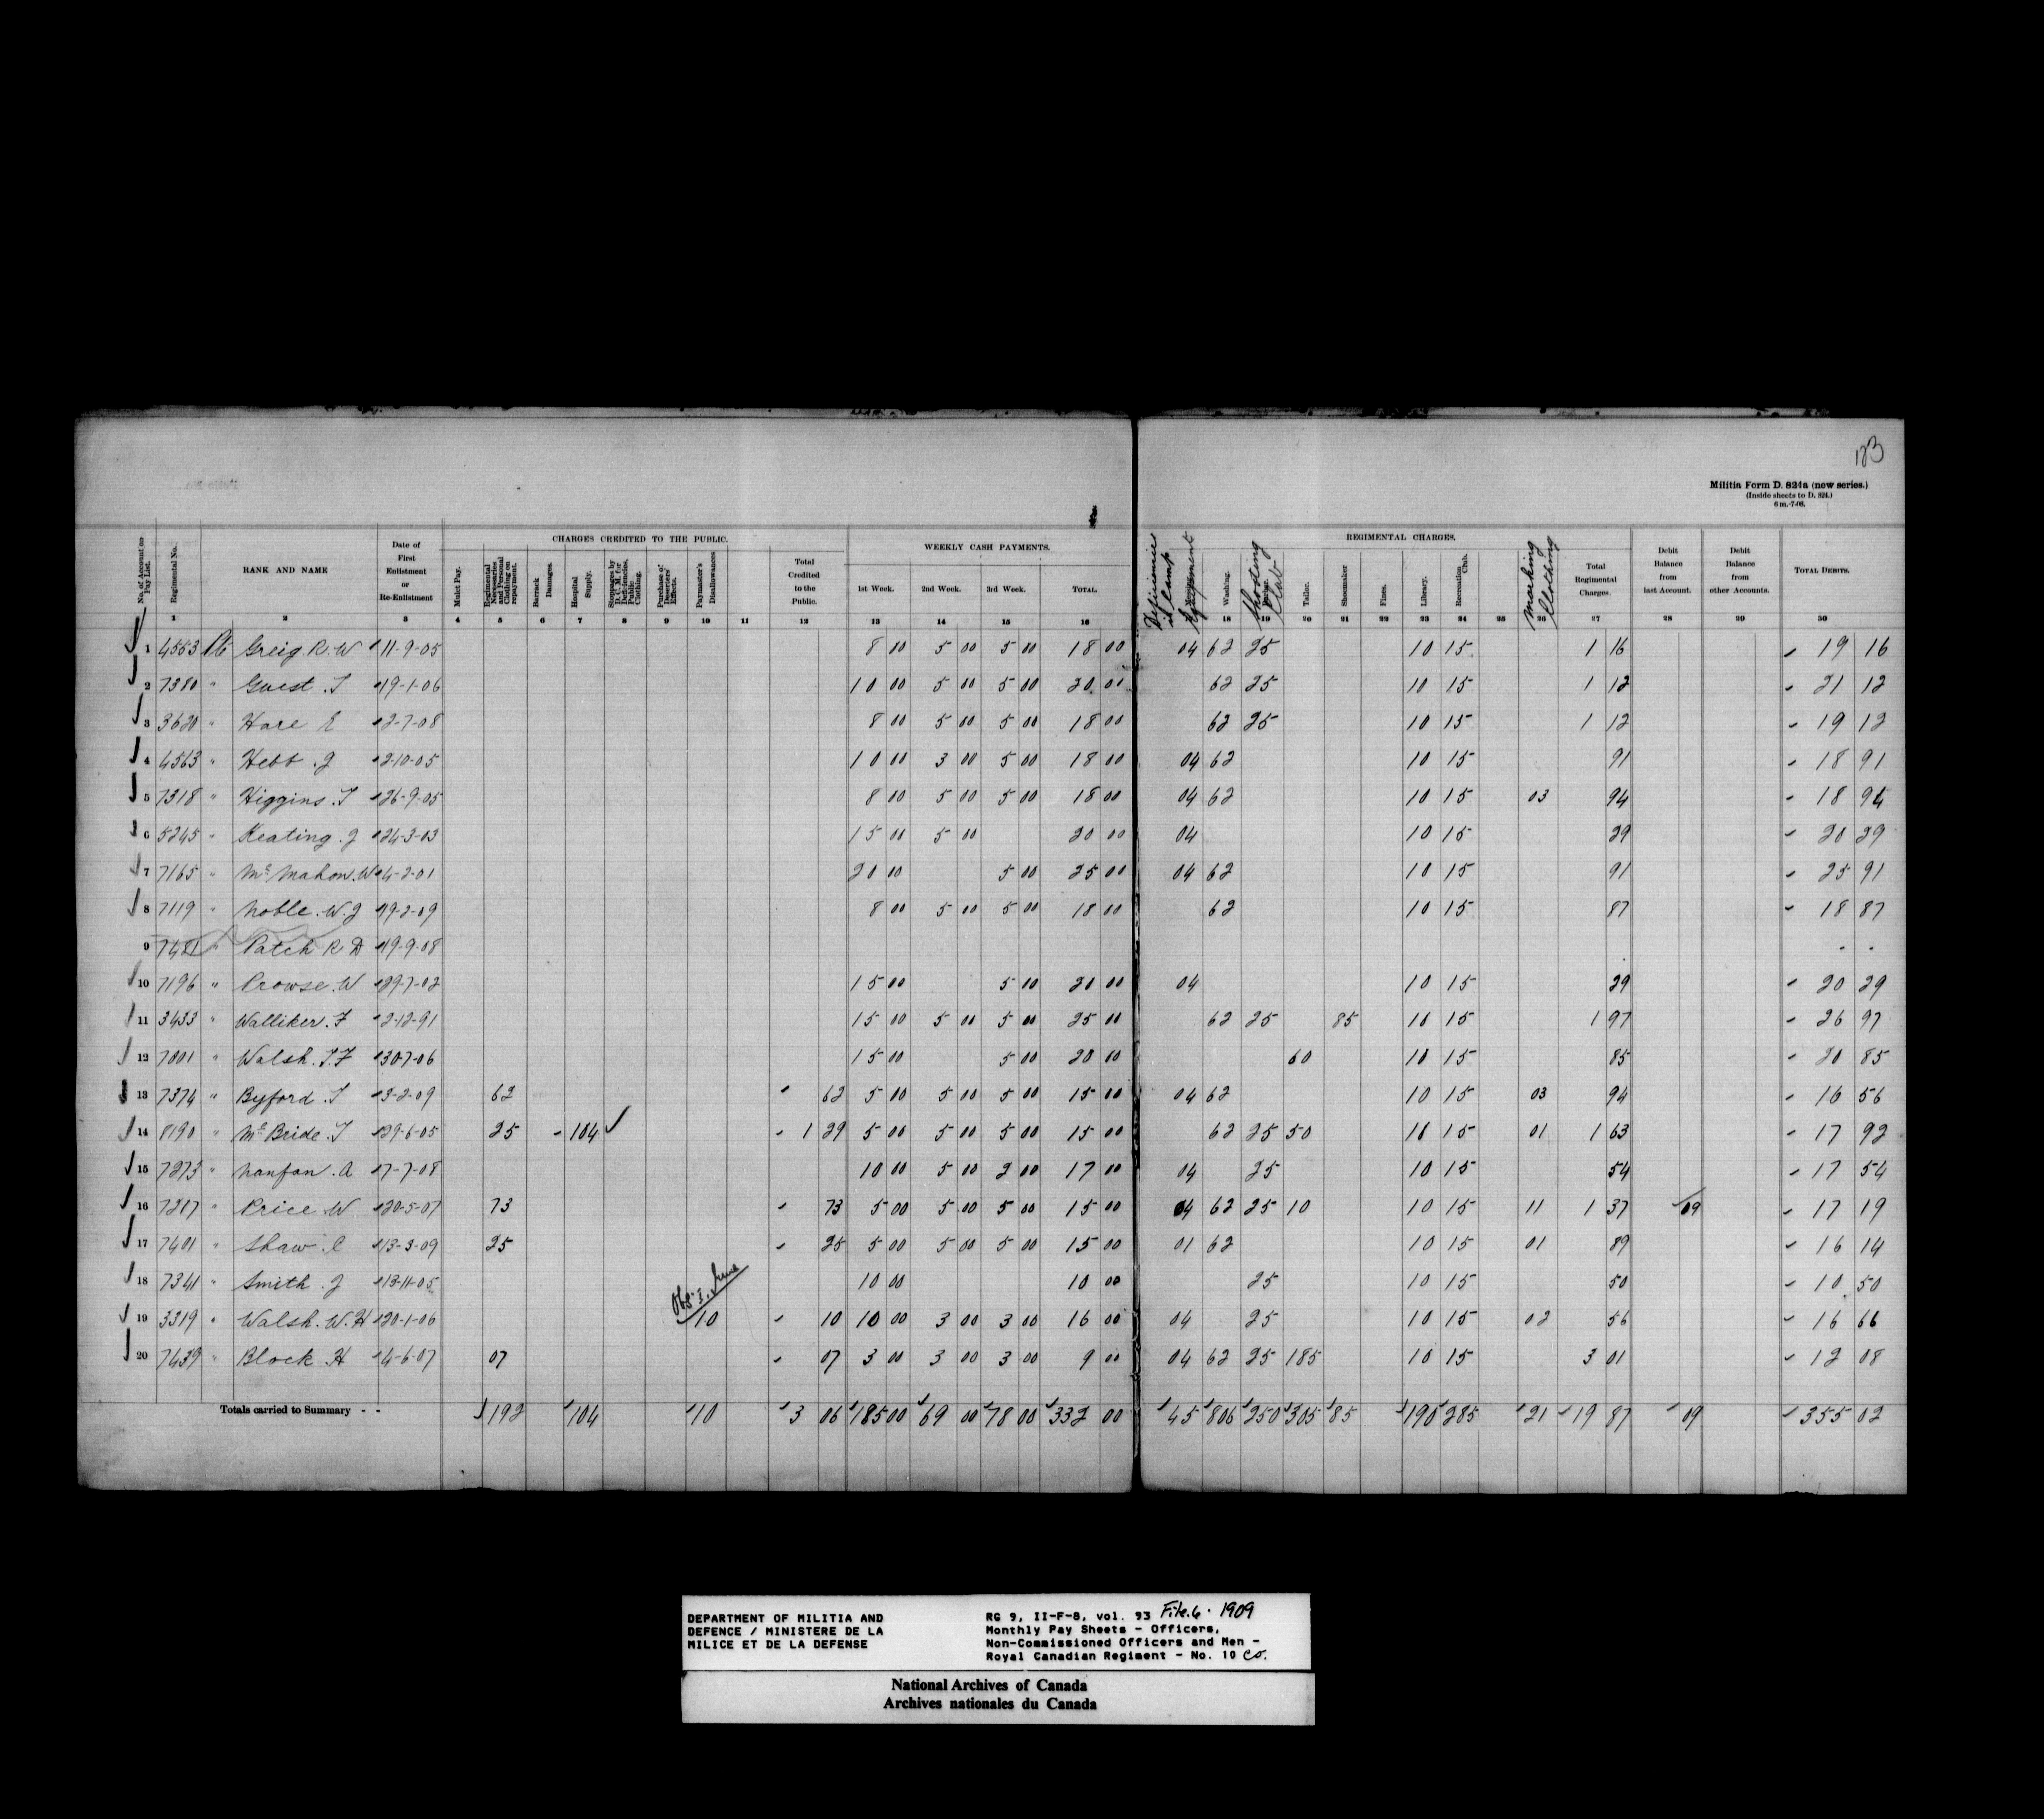 183
Militia Form D. 824a (new series.)
(Inside sheets to D. 824.)
6 m.-7-08.
No. of Account on Pay List.
Regimental No.
RANK AND NAME
Date of First Enlistment or Re-Enlistment
CHARGES CREDITED TO THE PUBLIC.
Mulct Pay.
Regimental Necessaries and Personal Clothing on repayment.
Barrack Damages.
Hospital Supply.
Stoppages by D.C.M. for Deficiencies, Public Clothing.
Purchase of Deserters' Effects.
Paymaster's Disallowances
Total Credited to the Public.
WEEKLY CASH PAYMENTS.
1st Week. 2nd Week. 3rd Week. TOTAL.
REGIMENTAL CHARGES.
Camp Equipment
Washing.
Shooting Club
Tailor.
Shoemaker
Fines.
Library.
Recreation Club.
Marking Clothing
Total Regimental Charges.
Debit Balance from last Account.
Debit Balance from other Accounts.
TOTAL DEBITS.
1 2 3 4 5 6 7 8 9 10 11 12 13 14 15 16 18 19 20 21 22 23 24 25 26 27 28 29 30
1 4553 Pte Greig R. W 11-9-05 8 00 5 00 5 00 18 00 04 62 25 10 15 1 16 19 16
2 7380 " Guest. T 19-1-06 10 00 5 00 5 00 20 00 62 25 10 15 1 12 21 12
3 3620 " Hare E 2-7-08 8 00 5 00 5 00 18 00 62 25 10 15 1 12 19 12
4 4563 " Hebb. J 2-10-05 10 00 3 00 5 00 18 00 04 62 10 15 91 18 91
5 7318 " Higgins. T 26-9-05 8 00 5 00 5 00 18 00 04 62 10 15 03 94 18 94
6 5245 " Keating. J 24-3-03 15 00 5 00 20 00 04 10 15 29 20 29
7 7165 " McMahon. W 4-2-01 20 00 5 00 25 00 04 62 10 15 91 25 91
8 7119 " Noble. W. J 19-2-09 8 00 5 00 5 00 18 00 62 10 15 87 18 87
9 7421 " Patch R D 19-9-08 - -
10 7196 " Prowse. W 29-7-02 15 00 5 00 20 00 04 10 15 29 20 29
11 3433 " Walliker. F 2-12-91 15 00 5 00 5 00 25 00 62 25 85 10 15 1 97 26 97
12 7001 " Walsh. T. F 30-7-06 15 00 5 00 20 00 60 10 15 85 20 85
13 7374 " Byford. T 3-2-09 62 62 5 00 5 00 5 00 15 00 04 62 10 15 03 94 16 56
14 8190 " McBride. T 29-6-05 25 104 1 29 5 00 5 00 5 00 15 00 62 25 50 10 15 01 1 63 17 92
15 7273 " Nanfan. A 7-7-08 10 00 5 00 2 00 17 00 04 25 10 15 54 17 54
16 7217 " Price W 20-5-07 73 73 5 00 5 00 5 00 15 00 04 62 25 10 10 15 11 1 37 09 17 19
17 7401 " Shaw. C 13-3-09 25 25 5 00 5 00 5 00 15 00 01 62 10 15 01 89 16 14
18 7341 " Smith. J 13-11-05 10 00 10 00 25 10 15 50 10.50
Obs. 1. June
19 3319 " Walsh. W. H 20-1-06 10 10 10 00 3 00 3 00 16 00 04 25 10 15 02 56 16 66
20 7439 " Block. H 4-6-07 07 07 3 00 3 00 3 00 9 00 04 62 25 185 10 15 3 01 12 08
Totals carried to Summary - - 192 104 10 3 06 185 00 69 00 78 00 332 00 45 806 250 305 85 190 285 21 19 87 09 355 02
DEPARTMENT OF MILITIA AND
DEFENCE / MINISTERE DE LA
MILICE ET DE LA DEFENSE
RG 9, II-F-8, vol. 93 File.6. 1909
Monthly Pay Sheets - Officers,
Non-Commissioned Officers and Men -
Royal Canadian Regiment - No. 10 Co.
National Archives of Canada
Archives nationales du Canada